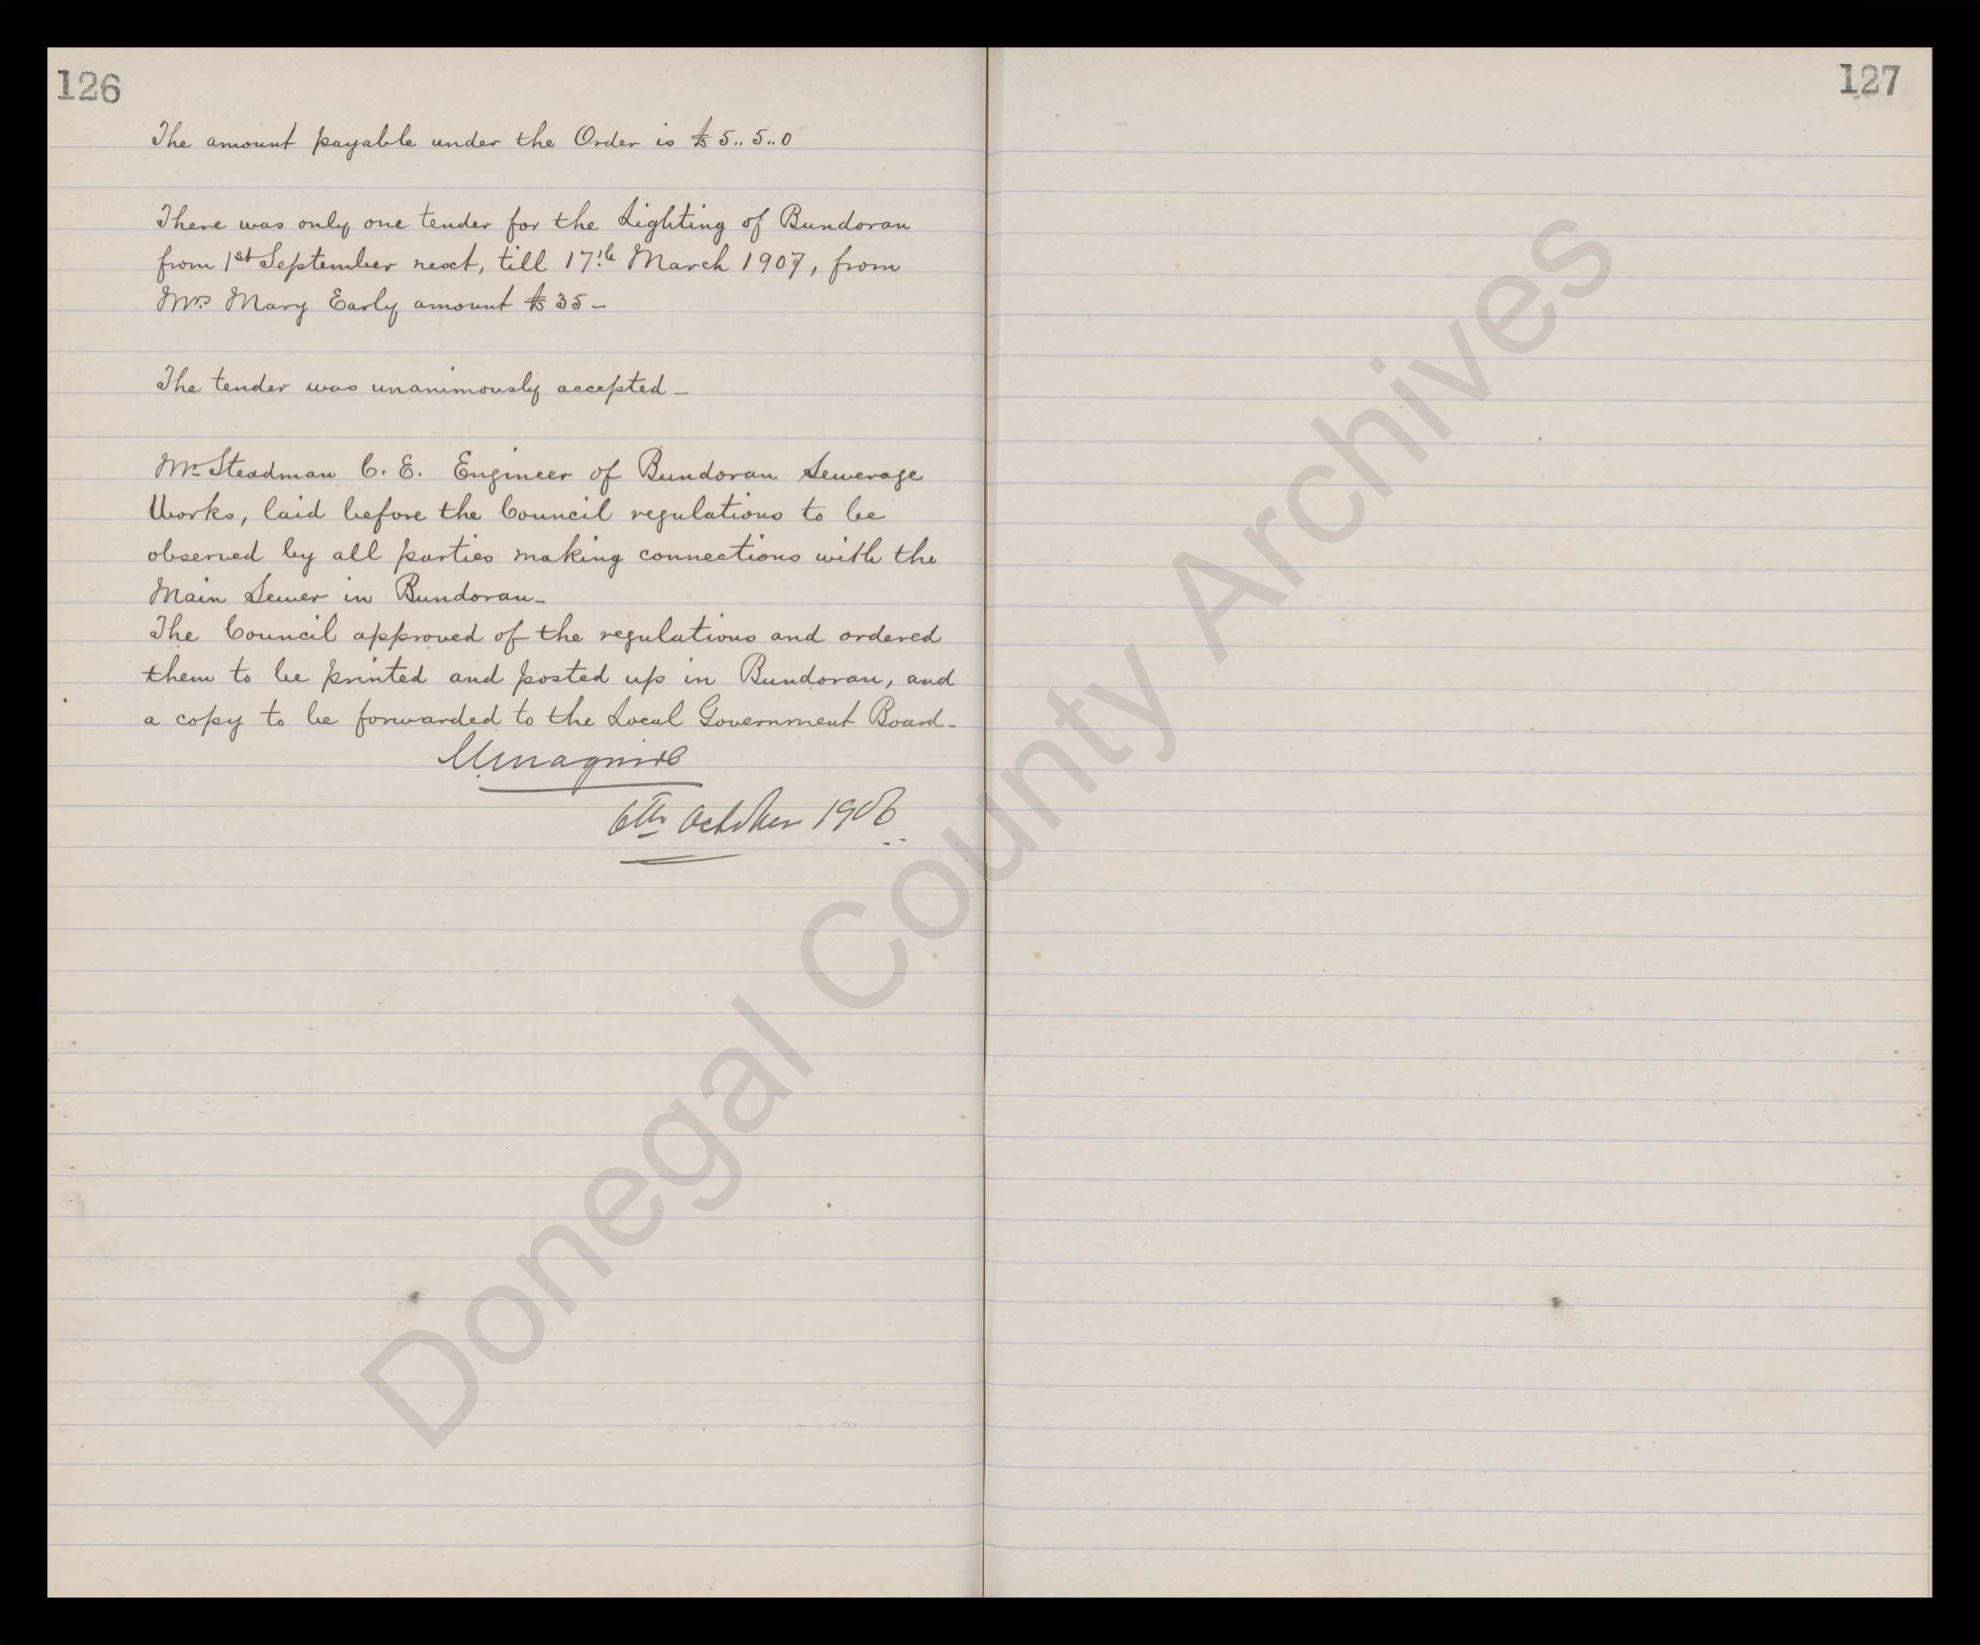 126
The amount payable under the Order is £5..5..0
There was only one tender for the Lighting of Bundoran
from 1st September next, till 17th March 1907, from
Mrs Mary Early amount £35–
The tender was unanimously accepted–
Mr Steadman C. E. Engineer of Bundoran Sewerage
Works, laid before the Council regulations to be
observed by all parties making connections with the
Main Sewer in Bundoran–
The Council approved of the regulations and ordered
them to be printed and posted up in Bundoran, and
a copy to be forwarded to the Local Government Board–
Maguire
6th October 1906
127
Donegal County Archives